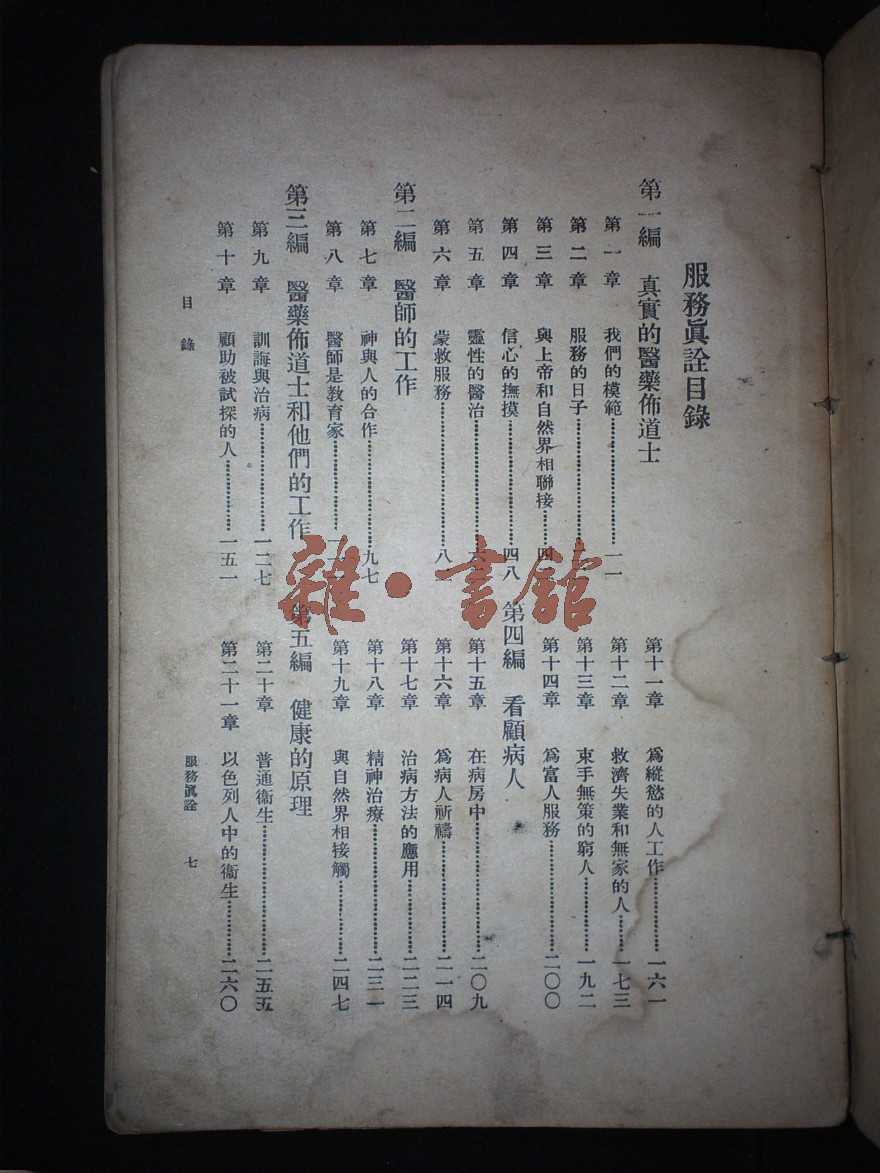 服務眞詮目錄
第一編 真實的醫藥佈道士
第一章 我們的模範……一一
第二章 服務的日子……
第三章 與上帝和自然界相聯接……四
第四章 信心的撫摸……四八
第五章 靈性的醫治……六
第六章 蒙救服務……八
第二編 醫師的工作
第七章 神與人的合作……九七
第八章 醫師是教育家……一
第三編 醫藥佈道士和他們的工作
第九章 訓誨與治病……一二七
第十章 顧助被試探的人……一五一
第十一章 爲縱慾的人工作……一六一
第十二章 救濟失業和無家的人……一七三
第十三章 束手無策的窮人……一九二
第十四章 爲富人服務……二〇〇
第四編 看顧病人
第十五章 在病房中……二〇九
第十六章 爲病人祈禱……二一四
第十七章 治病方法的應用……二二三
第十八章 精神治療……二三一
第十九章 與自然界相接觸……二四七
第五編 健康的原理
第二十章 普通衞生……二五五
第二十一章 以色列人中的衞生……二六〇
目錄
服務眞詮 七
雜·書館